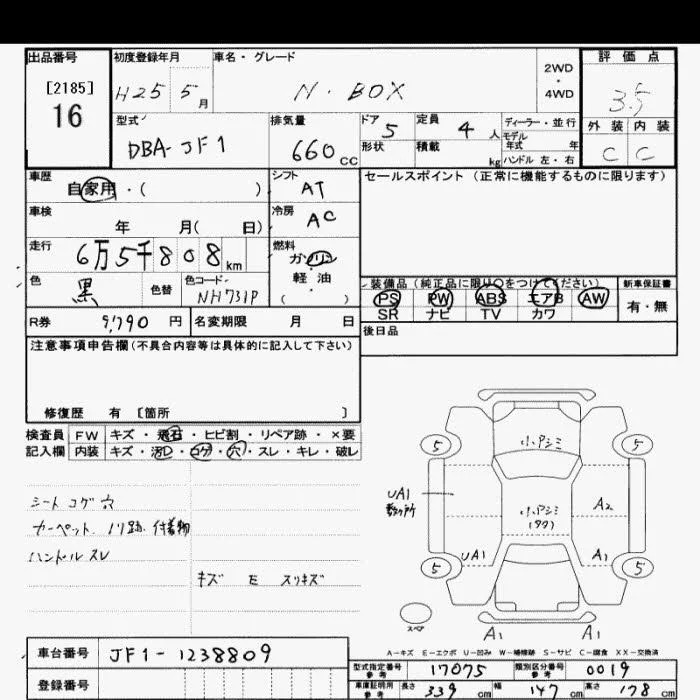 出品番号 初度登録年月 車名・グレード 2WD・4WD 評価点
[2185] 16 H25 5月 N・BOX 3.5
型式 排気量 ドア 定員 ディーラー・並行 外装 内装
DBA-JF1 660cc 5 4人 モデル年式 年 C C
形状 積載 kg ハンドル 左・右
車歴 シフト セールスポイント(正常に機能するものに限ります)
自家用・( ) AT
車検 年 月( 日) 冷房 AC
走行 6万5千808km 燃料 ガソリン
軽・油
( )
色 黒 色替 色コード NH731P 装備品(純正品に限り○をつけてください) 新車保証書
PS PW ABS エアB AW 有・無
SR ナビ TV カワ
R券 9,790円 名変期限 月 日 後日品
注意事項申告欄(不具合内容等は具体的に記入して下さい)
修復歴 有 〔箇所 〕
検査員 FW キズ・飛石・ヒビ割・リペア跡・×要
記入欄 内装 キズ・汚レ・コゲ・穴・スレ・キレ・破レ
シート コゲ穴
カーペット ノリ跡 付着物
ハンドル スレ
キズ E スリキズ
5 5
小、アジミ
UA1
数ヶ所
A2
小、アジミ
UA1 A1
5 5
スペア
A1 A1
A-キズ E-エクボ U-凹み W-補修跡 S-サビ C-腐食 XX-交換済
車台番号 JF1-1238809
登録番号
型式指定番号 参考 17075 類別区分番号 参考 0019
車庫証明用 参考 長さ 339cm 幅 147cm 高さ 178cm